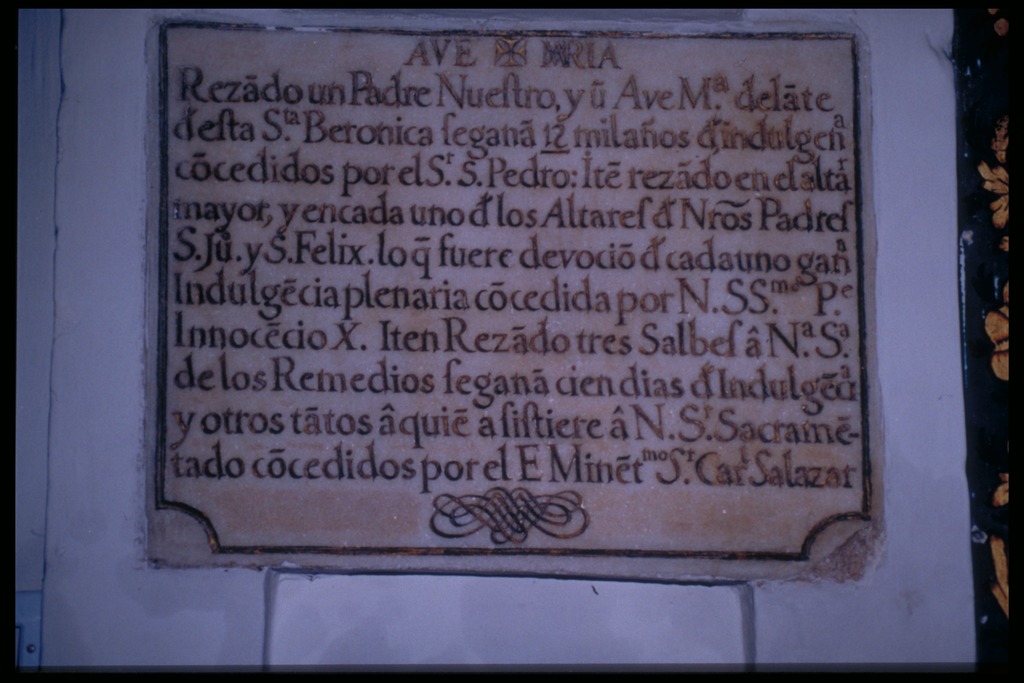 AVE ✠ MARIA
Rezādo un Padre Nueſtro, y ū Ave M.ª delāte
đeſta S.ᵗᵃ Beronica ſeganā 12 mil años đ indulgenª
cōcedidos por el S.ʳ S. Pedro: Itē rezādo en el altāʳ
mayor, y en cada uno đ los Altareſ đ Nrōs Padreſ
S. Jū. y S. Felix. lo q̄ fuere devociō đ cada uno ganª
Indulgēcia plenaria cōcedida por N. SS.ᵐᵒ P.ᵉ
Innocēcio X. Iten Rezādo tres Salbeſ â N.ª S.ª
de los Remedios ſeganā cien dias đ Indulgēciª
y otros tātos â quiē aſiſtiere â N. S.ʳ Sacramē-
tado cōcedidos por el E Minēt.ᵐᵒ S.ʳ Carˡ Salazar